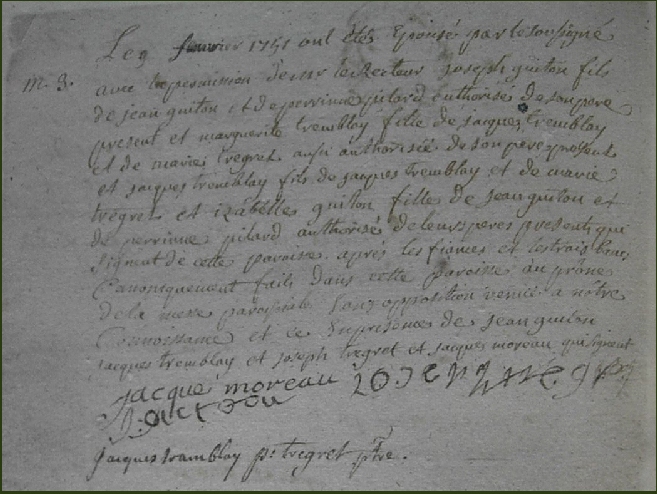 Le 9 feuvrier 1751 ont etés Epousé par le soussigné
m. 3. avec la permission de mr le Recteur Joseph guiton fils
de jean guiton et de perrinne pilard authorisés de son pere
present et marguerite tremblay fille de jacques Tremblay
et de marie tregret aussi authorisée de son pere present
et jacques tremblay fils de jacques Tremblay et de marie
tregret et izabelles guiton filles de jean guiton et
de perrinne pilard authorisés de leurs peres presents qui
signent de cette paroisse après les fiances et les trois bans
Canoniquement faits dans cette paroisse au prône
de la messe paroissialle sans opposition venue a nôtre
Connoissance et ce En presence de jean guiton
jacques tremblay et joseph tregret et jacques moreau qui signent
jacque moreau
jacques tramblay p: tregret ptre.